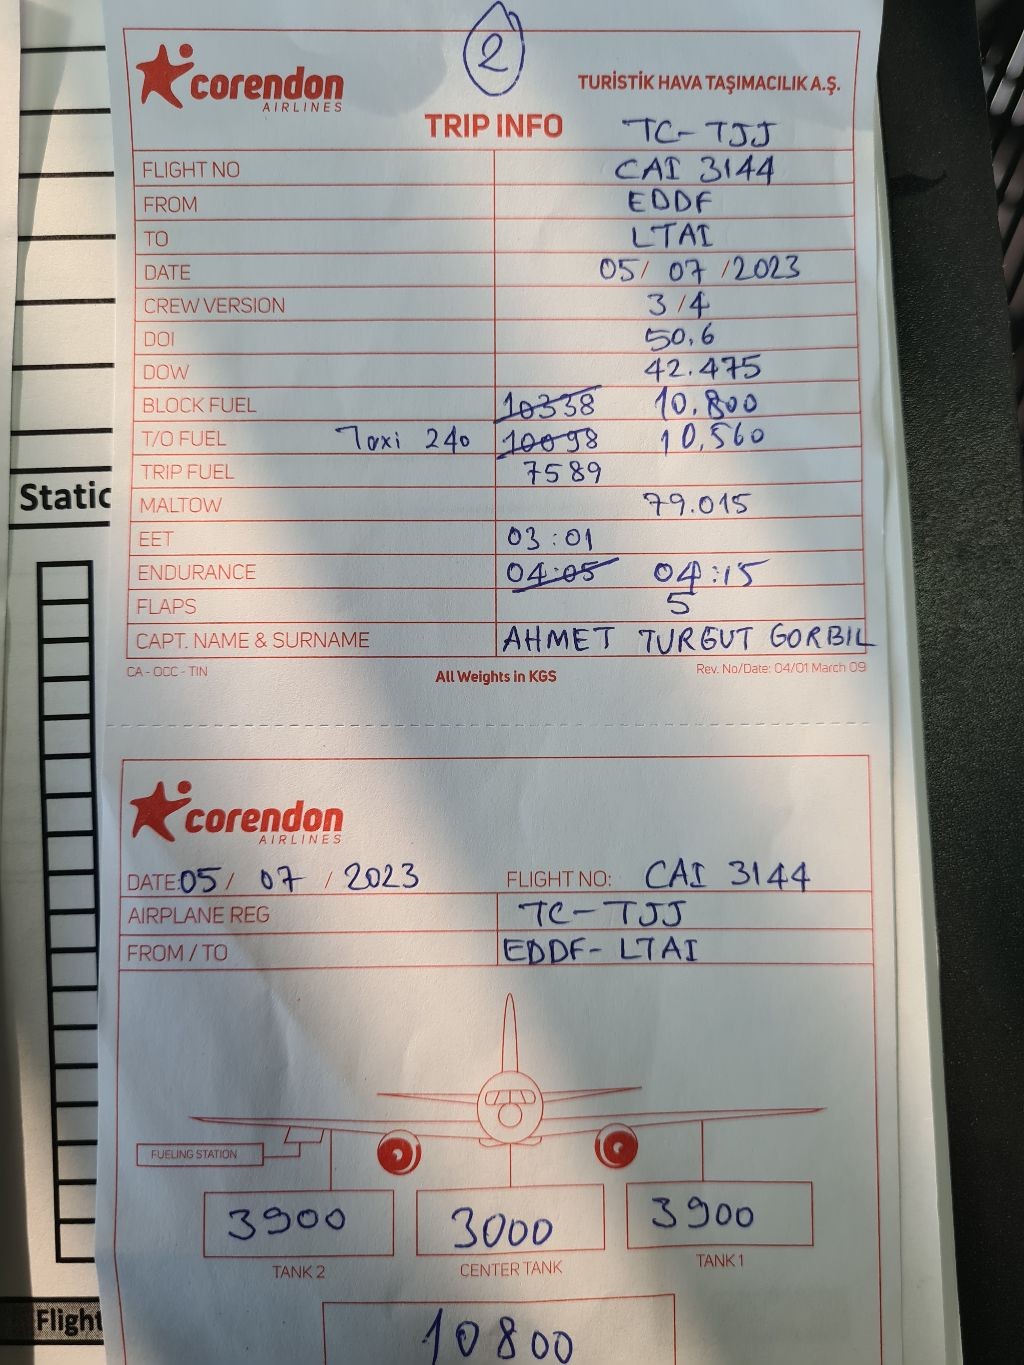 2
corendon
AIRLINES
TURİSTİK HAVA TAŞIMACILIK A.Ş.
TRIP INFO TC-TJJ
FLIGHT NO CAI 3144
FROM EDDF
TO LTAI
DATE 05/ 07 /2023
CREW VERSION 3/4
DOI 50.6
DOW 42.475
BLOCK FUEL 10338 10.800
T/O FUEL Taxi 240 10098 10,560
TRIP FUEL 7589
MALTOW 79.015
EET 03:01
ENDURANCE 04:05 04:15
FLAPS 5
CAPT. NAME & SURNAME AHMET TURGUT GORBIL
CA - OCC - TIN All Weights in KGS Rev. No/Date: 04/01 March 09
Static
corendon
AIRLINES
DATE: 05/ 07 / 2023 FLIGHT NO: CAI 3144
AIRPLANE REG TC-TJJ
FROM / TO EDDF-LTAI
FUELING STATION
3900 3000 3900
TANK 2 CENTER TANK TANK 1
Flight
10800